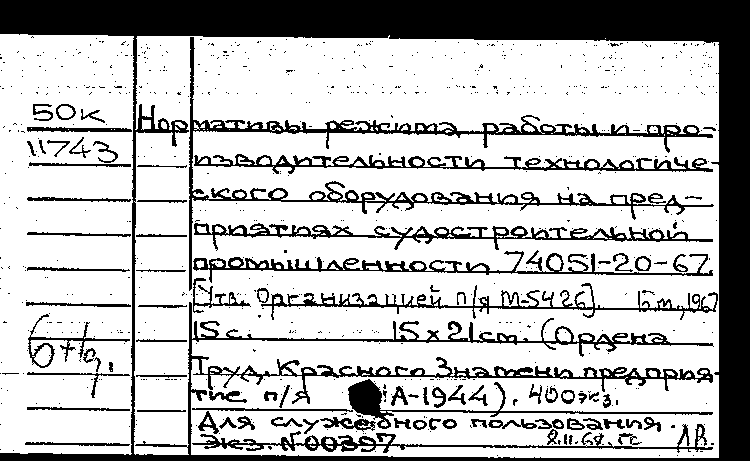 50к
11743
Нормативы режима работы и про-
изводительности технологиче-
ского оборудования на пред-
приятиях судостроительной
промышленности 74051-20-67.
[Утв. Организацией п/я М-5426]. Б.м., 1967
15 с. 15 x 21 cm. (Ордена
Труд. Красного Знамени предприя-
тие п/я А-1944). 400 экз.
Для служебного пользования.
Экз. № 00397.
ЛВ.